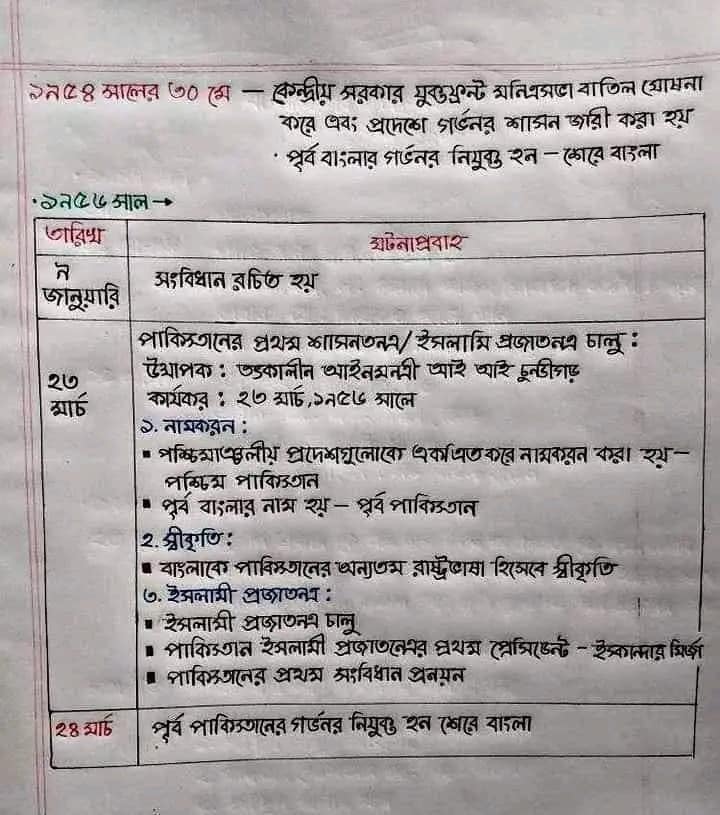 ১৯৫৪ সালের ৩০ মে — কেন্দ্রীয় সরকার যুক্তফ্রন্ট মন্ত্রিসভা বাতিল ঘোষনা
করে এবং প্রদেশে গর্ভনর শাসন জারী করা হয়
· পূর্ব বাংলার গর্ভনর নিযুক্ত হন – শেরে বাংলা
· ১৯৫৬ সাল →
তারিখ
ঘটনাপ্রবাহ
৯
জানুয়ারি
সংবিধান রচিত হয়
২৩
মার্চ
পাকিস্তানের প্রথম শাসনতন্ত্র/ ইসলামি প্রজাতন্ত্র চালু :
উত্থাপক : তৎকালীন আইনমন্ত্রী আই আই চুন্দ্রীগড়
কার্যকর : ২৩ মার্চ, ১৯৫৬ সালে
১. নামকরন :
▪ পশ্চিমাঞ্চলীয় প্রদেশগুলোকে একত্রিত করে নামকরন করা হয় –
পশ্চিম পাকিস্তান
▪ পূর্ব বাংলার নাম হয় – পূর্ব পাকিস্তান
২. স্বীকৃতি :
▪ বাংলাকে পাকিস্তানের অন্যতম রাষ্ট্রভাষা হিসেবে স্বীকৃতি
৩. ইসলামী প্রজাতন্ত্র :
▪ ইসলামী প্রজাতন্ত্র চালু
▪ পাকিস্তান ইসলামী প্রজাতন্ত্রের প্রথম প্রেসিডেন্ট – ইস্কান্দার মির্জা
▪ পাকিস্তানের প্রথম সংবিধান প্রনয়ন
২৪ মার্চ
পূর্ব পাকিস্তানের গর্ভনর নিযুক্ত হন শেরে বাংলা